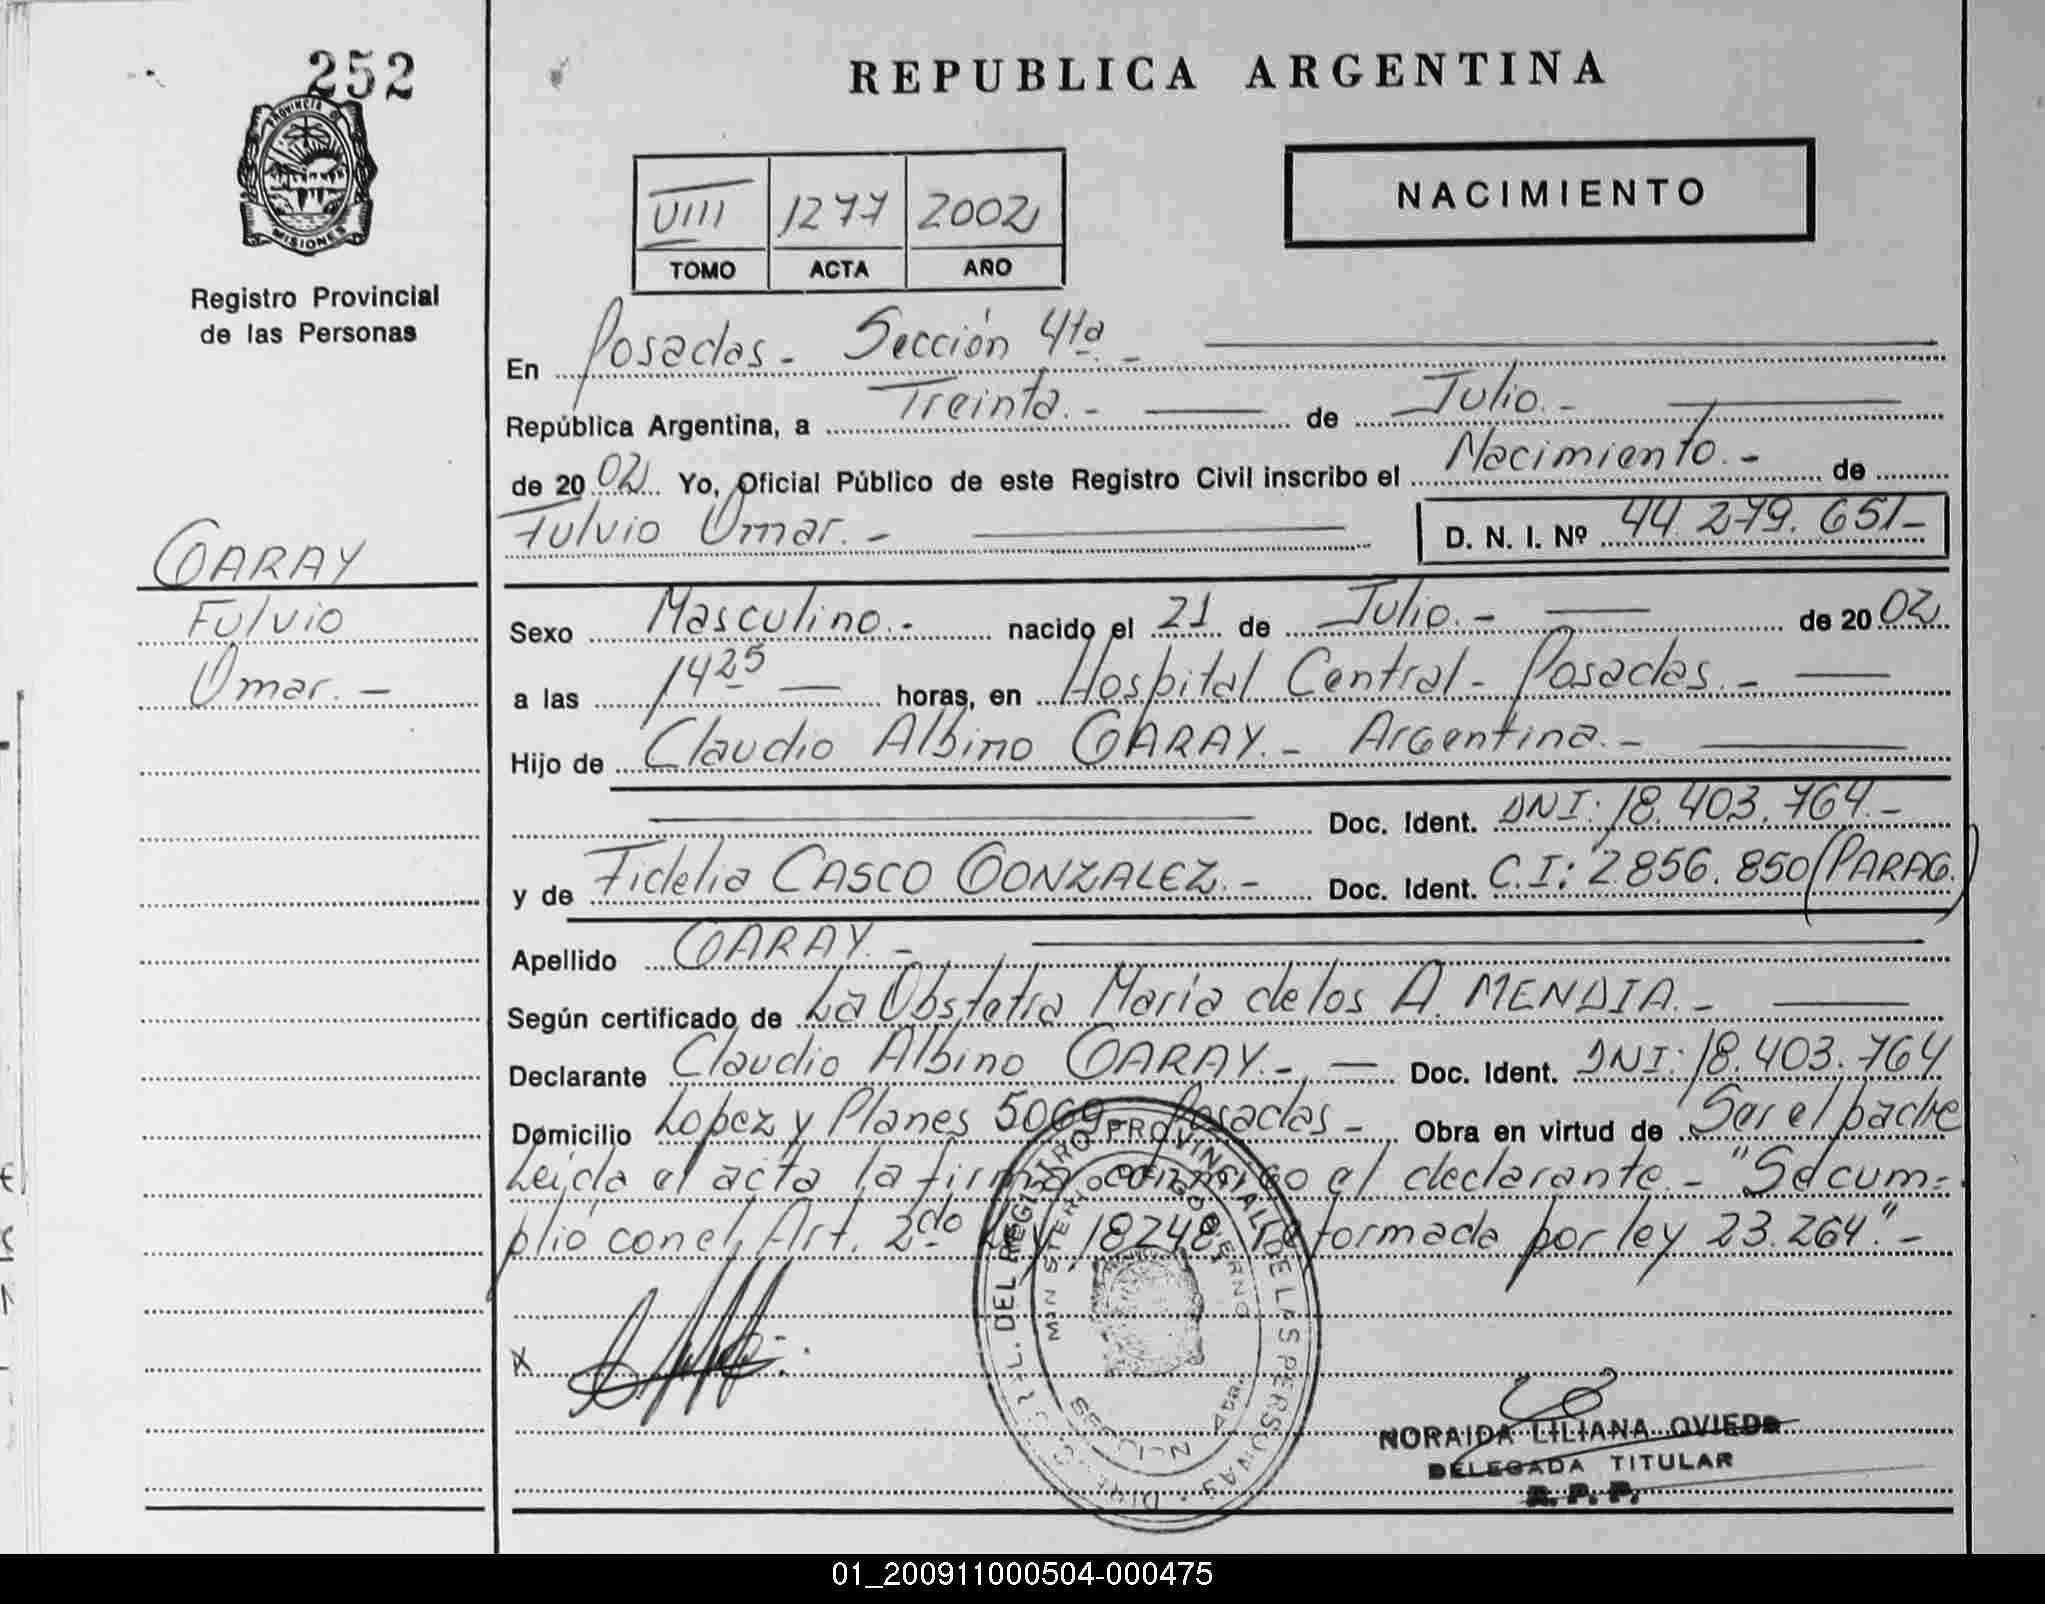 252
PROVINCIA DE
MISIONES
Registro Provincial
de las Personas
REPUBLICA ARGENTINA
NACIMIENTO
VIII 1277 2002
TOMO ACTA AÑO
En Posadas.- Sección 4ta.-
República Argentina, a Treinta.- de Julio.-
de 2002 Yo, Oficial Público de este Registro Civil inscribo el Nacimiento.- de
Fulvio Omar.- D. N. I. Nº 44.279.651-
GARAY
Fulvio
Omar.-
Sexo Masculino.- nacido el 21 de Julio.- de 2002
a las 14 25 horas, en Hospital Central - Posadas.-
Hijo de Claudio Albino GARAY.- Argentina.-
Doc. Ident. DNI: 18.403.764.-
y de Fidelia CASCO GONZALEZ.- Doc. Ident. C.I: 2856.850 (PARAG.)
Apellido GARAY.-
Según certificado de La Obstetra María de los A. MENDIA.-
Declarante Claudio Albino GARAY.- Doc. Ident. DNI: 18.403.764
Domicilio Lopez y Planes 5069 Posadas - Obra en virtud de Ser el padre
Leída el acta la firma conmigo el declarante.- "Se cum-
plió con el Art. 2do Ley 18248, reformada por ley 23.264".-
DEL REGISTRO PROVINCIAL DE LAS PERSONAS
MINISTERIO DE GOBIERNO
X
NORAIDA LILIANA OVIEDO
DELEGADA TITULAR
R. P. P.
01_200911000504-000475